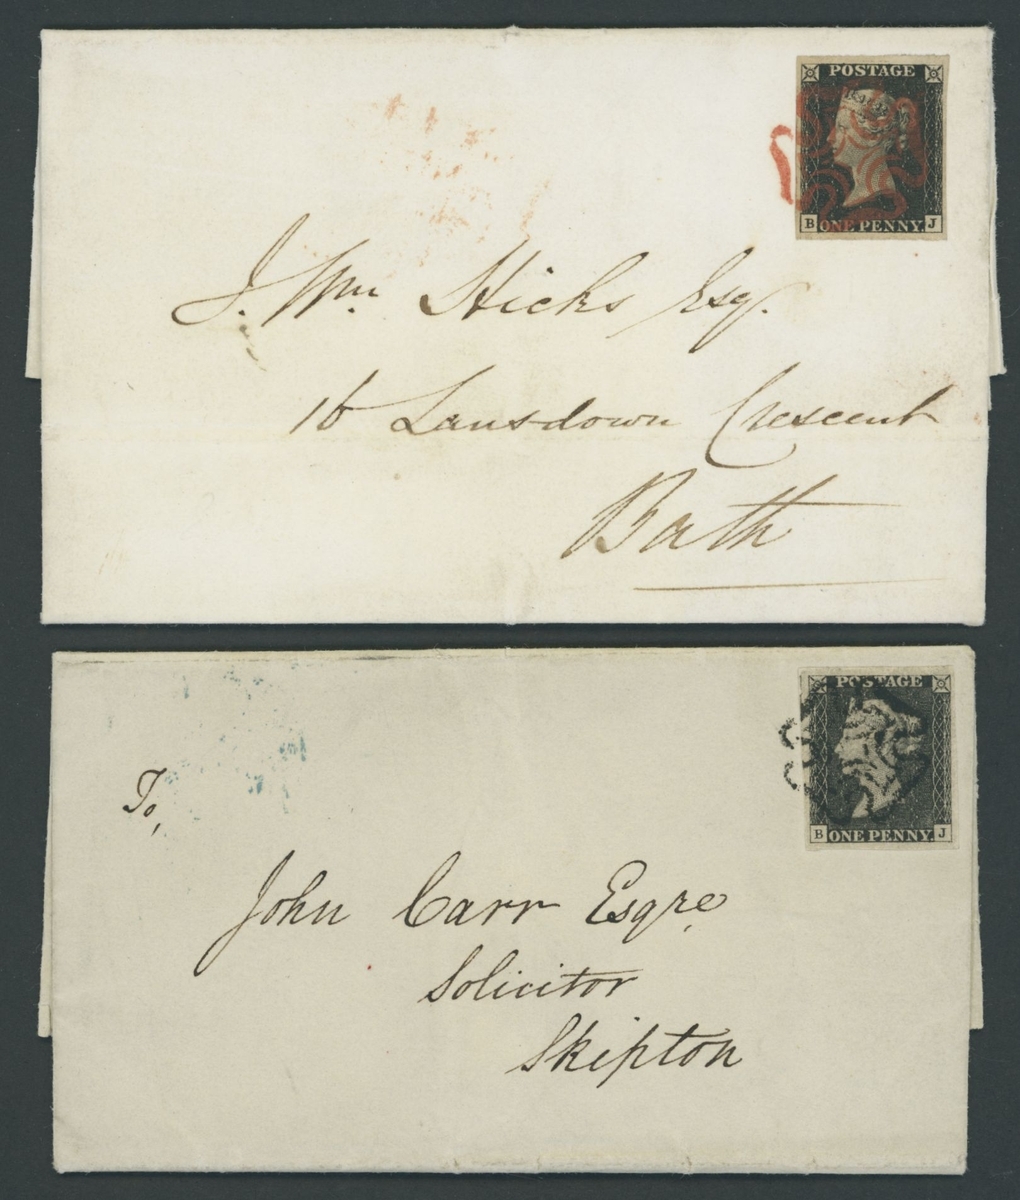 POSTAGE
B ONE PENNY. J
J. Wm. Hicks Esq.
16 Lansdown Crescent
Bath
POSTAGE
B ONE PENNY. J
To,
John Carr Esqre
Solicitor
Skipton